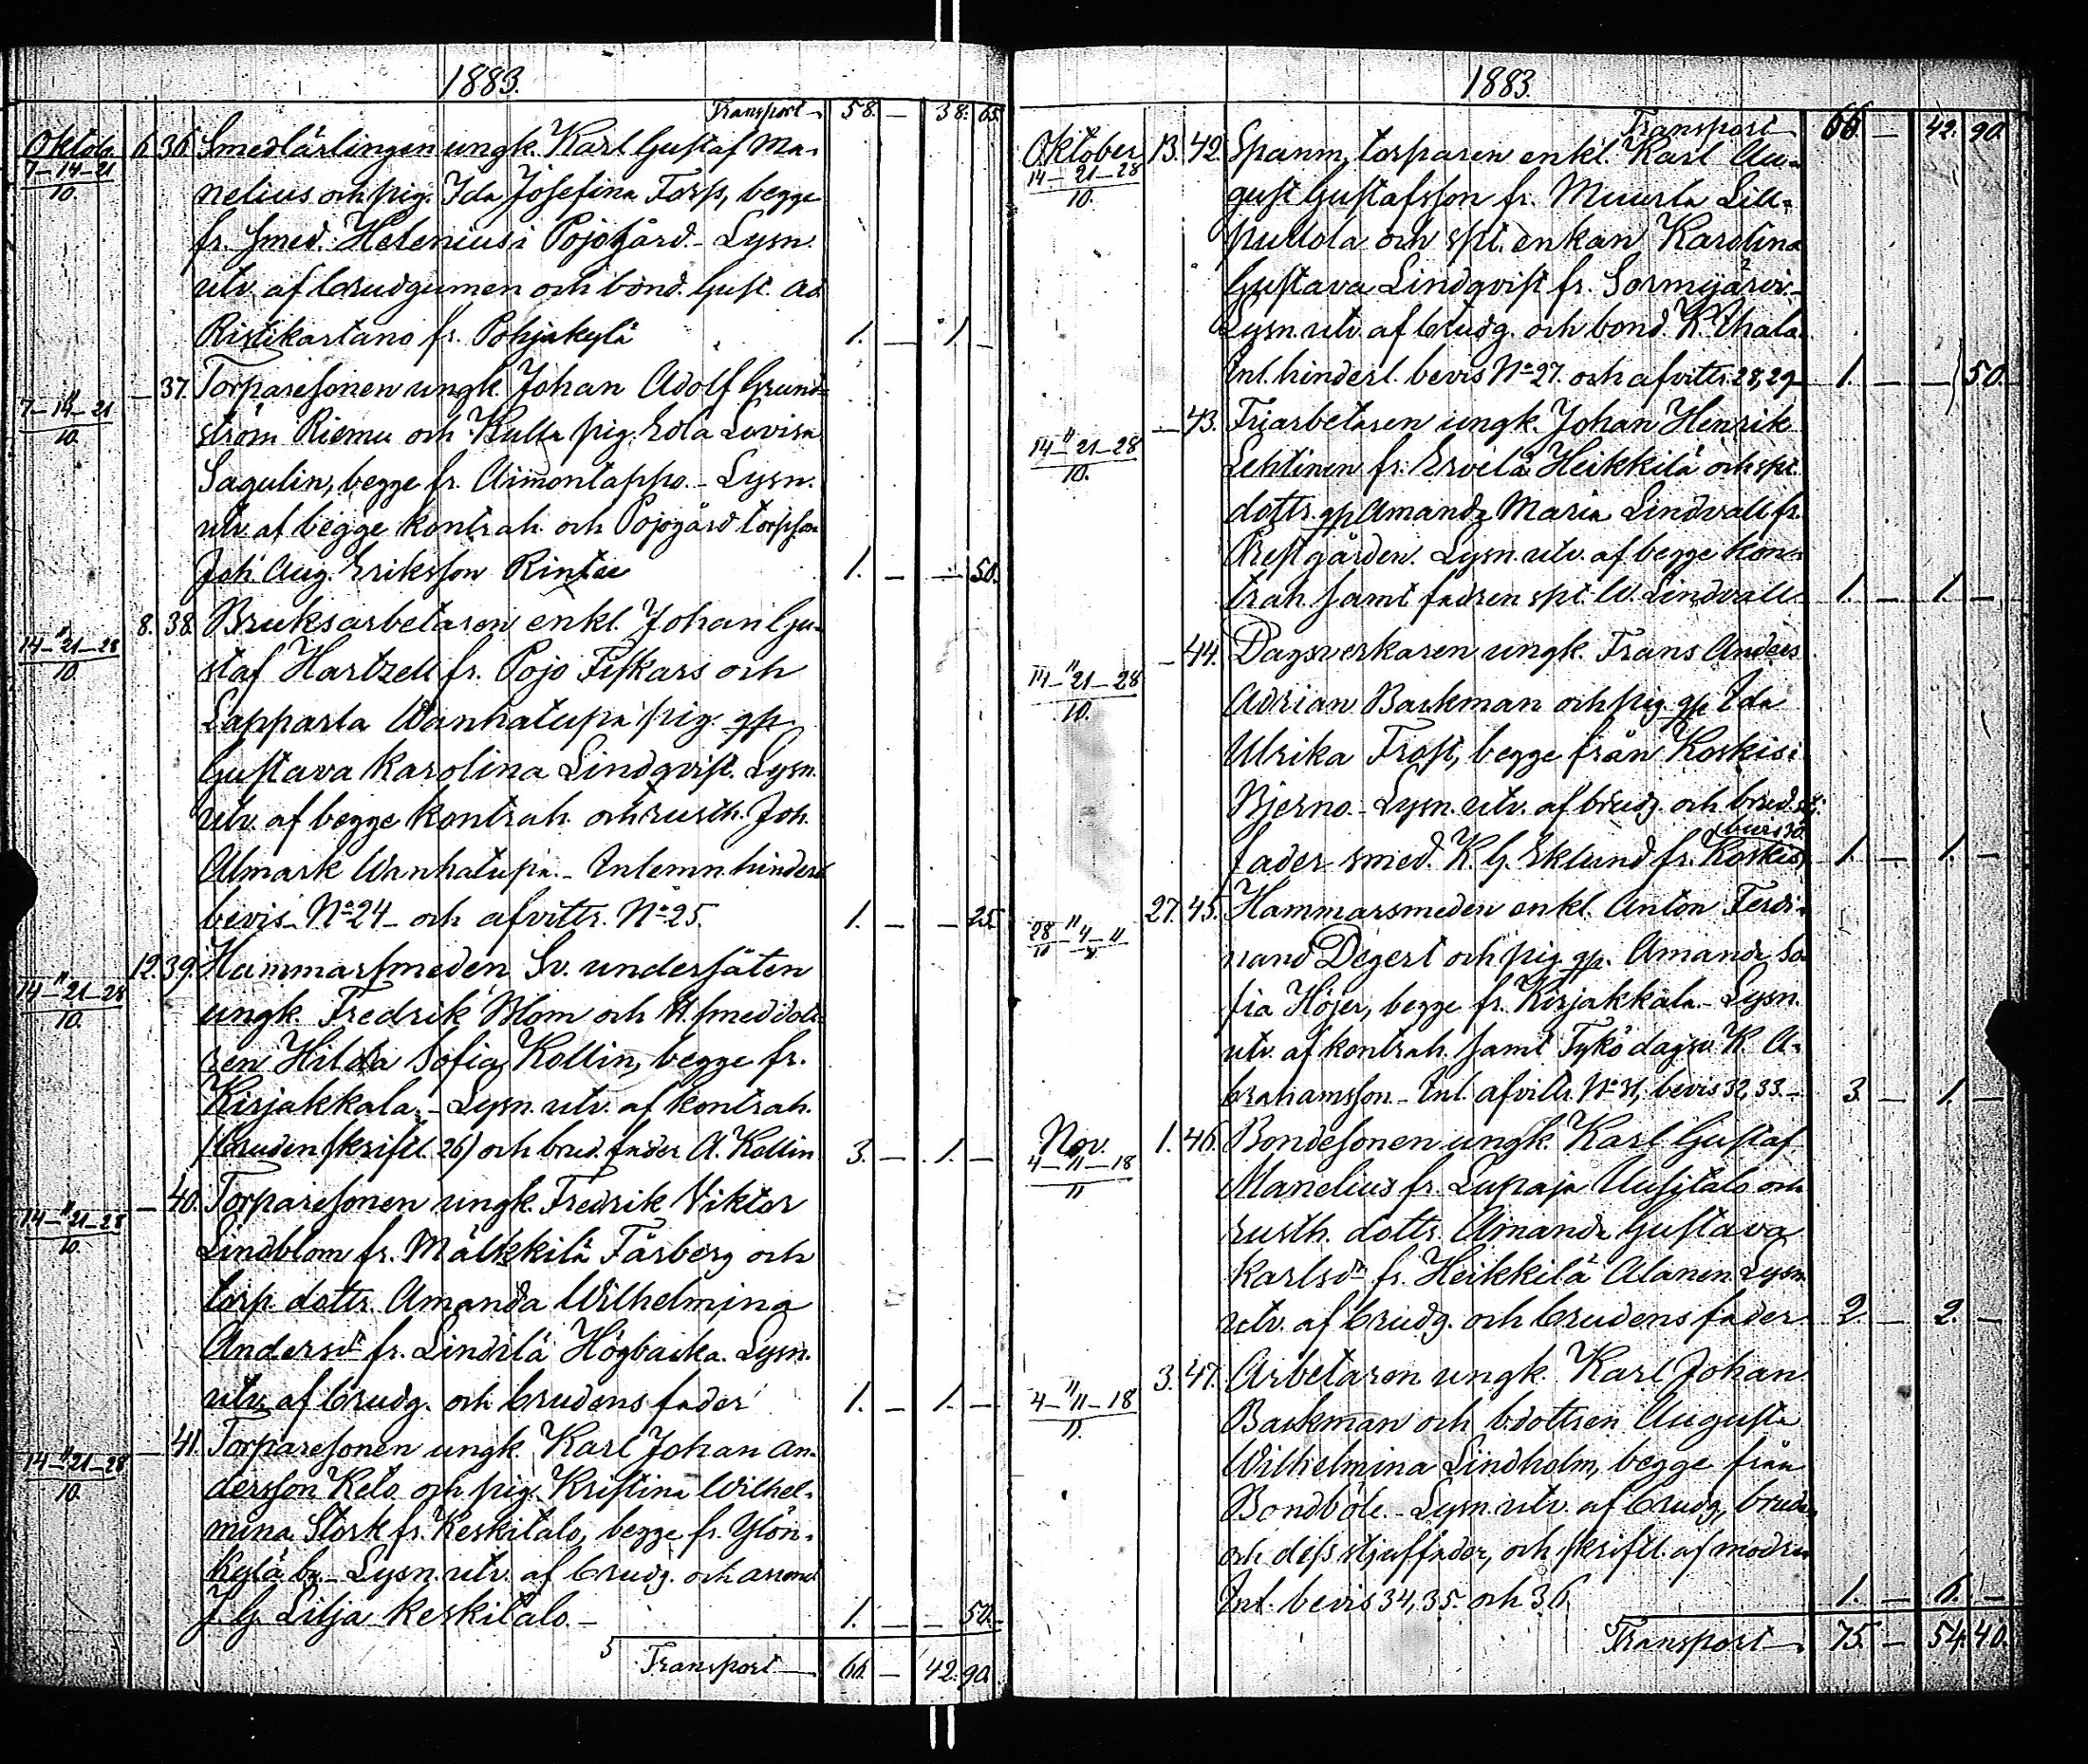 1883.
Transport 58. — 38. 65.
Oktob. 6. 36. Smedlärlingen ungk. Karl Gustaf Ma-
7–14–21
10. nelius och pig. Ida Josefina Torp, begge
fr. smed. Helenius i Pojogård. – Lysn.
utv. af brudgumen och bond. Gust. Ad.
Ristikartano fr. Pohjakylä 1. — 1. —
— 37. Torparesonen ungk. Johan Adolf Grund-
7–14–21
10. ström Riemu och Kulla pig. Eda Lovisa
Sagulin, begge fr. Aimontappo. – Lysn.
utv. af begge kontrah. och Pojogård torpson
Joh. Aug. Eriksson Rintee 1. — — 50.
8. 38. Bruksarbetaren enkl. Johan Gu-
14–21–28
10. staf Hartzell fr. Pojo Fiskars och
Lapparla Wanhatupa pig. gp
Gustava Karolina Lindqvist. Lysn.
utv. af begge kontrah. och rusth. Joh.
Almark Wanhatupa. – Inlemn. hinderl.
bevis No 24 – och afvittr. No 25. 1. — — 25.
12. 39. Hammarsmeden, Sv. undersåten
14–"21–28
10. ungk. Fredrik Blom och H. smed dott-
ren Hilda Sofia Kollin, begge fr.
Kirjakkala. – Lysn. utv. af kontrah.
/bruden skriftl. 26/ och brud. fader A. Kollin 3. — 1. —
— 40. Torparesonen ungk. Fredrik Viktor
14–"21–28
10. Lindblom fr. Mälkkilä Färberg och
torp. dottr. Amanda Wilhelmina
Andersdr fr. Lindilä Högbacka. Lysn.
utv. af brudg. och brudens fader 1. — 1. —
— 41. Torparesonen ungk. Karl Johan An-
14–"21–28
10. dersson Keto och pig. Kristina Wilhel-
mina Stork fr. Keskitalo, begge fr. Ylön-
kylä by. – Lysn. utv. af brudg. och arrend.
J. G. Lilja Keskitalo. – 1. — — 50.
Transport 66. — 42. 90.
1883.
Transport 66. — 42. 90.
Oktober 13. 42. Spanm. torparen enkl. Karl Au-
14–21–28
10. gust Gustafsson fr. Muurla Lill-
pullola och spt. enkan Karolina
Gustava Lindqvist fr. Sormijärvi –
Lysn. utv. af brudg. och bond. K. Uhala.
Inl. hinderl. bevis No 27. och afvittr. 28, 29 1. — — 50.
— 43. Friarbetaren ungk. Johan Henrik
14–"21–28
10. Lehtinen fr. Ervelä Heikkilä och spt.
dottr. gp Amanda Maria Lindvall fr.
Prestgården. Lysn. utv. af begge kon-
trah. samt fadren spt. W. Lindvall 1. — 1. —
— 44. Dagsverkaren ungk. Frans Anders
14–"21–28
10. Adrian Backman och pig. gp Ida
Ulrika Frost, begge från Koskis i
Bjerno. – Lysn. utv. af brudg. och brud. st.
bevis 30.
fader smed. K. G. Eklund fr. Koskis 1. — 1. —
27. 45. Hammarsmeden enkl. Anton Ferdi-
28–"4–11
10 11 nand Degert och pig. gp. Amanda So-
fia Höjer, begge fr. Kirjakkala. – Lysn.
utv. af kontrah. samt Tykö dagsv. K. A-
brahamsson. – Inl. afvittr. No 31, bevis 32, 33. – 3. — 1. —
Nov. 1. 46. Bondesonen ungk. Karl Gustaf
4–11–18
11 Manelius fr. Lupaja Uusitalo och
rusth. dottr. Amanda Gustava
Karlsdr fr. Heikkilä Alanen. Lysn.
utv. af brudg. och brudens fader 2. — 2. —
3. 47. Arbetaren ungk. Karl Johan
4–"11–18
11. Backman och b.dottren Augusta
Wilhelmina Lindholm, begge från
Bondböle. – Lysn. utv. af brudg., bruden
och dess stjuffader, och skriftl. af modren
Inl. bevis 34, 35. och 36. 1. — 6. —
Transport 75. — 54. 40.